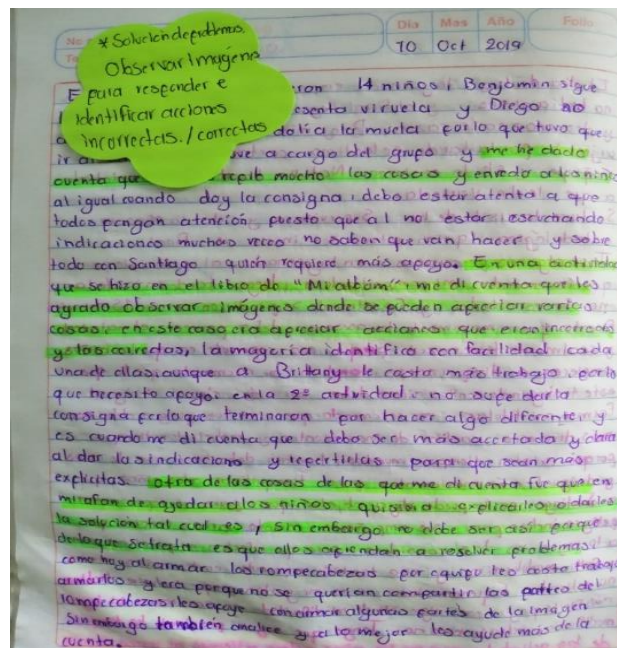 Dia Mes Año Folio
10 Oct 2019
* Solución de problemas.
Observar imágenes
para responder e
identificar acciones
incorrectas. / correctas
ron 14 niños, Benjamin sigue
senta viruela y Diego no
dolia la muela por lo que tuvo que
ir a cargo del grupo y me he dado
cuenta que repito mucho las cosas y enredo a los niños
al igual cuando doy la consigna, debo estar atenta a que
todos pongan atención, puesto que al no estar escuchando
indicaciones muchas veces no saben que van hacer y sobre
todo con Santiago quién requiere más apoyo. En una actividad
que se hizo en el libro de "Mi album", me di cuenta que les
agrado observar imágenes donde se pueden apreciar varias
cosas, en este caso era apreciar acciones que eran incorrectas
y las correctas, la mayoria identifico con facilidad cada
una de ellas, aunque a Brittany le costo más trabajo por lo
que necesito apoyo. en la 2ª actividad no supe dar la
consigna por lo que terminaron por hacer algo diferente y
es cuando me di cuenta que debo ser más acertada y clara
al dar las indicaciones y repertirlas para que sean más
explicitas. otra de las cosas de las que me di cuenta fue que en
mi afan de ayudar a los niños quisiera explicarles o darles
la solución tal cual es, sin embargo no debe ser asi porque
de lo que se trata es que ellos aprendan a resolver problemas
como hoy al armar los rompecabezas por equipo les costo trabajo
armarlos y era porque no se querian compartir las partes del
rompecabezas, les apoye con armar algunas partes de la imagen
Sin embargo también analice y a lo mejor les ayude más de la
cuenta.